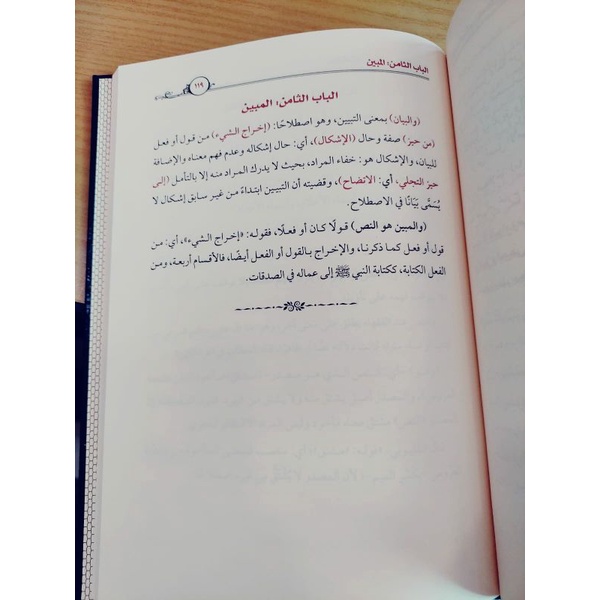 الباب الثامن: المبين
١١٩
الباب الثامن: المبين
(والبيان) بمعنى التبيين، وهو اصطلاحًا: (إخراج الشيء) من قول أو فعل
(من حيز) صفة وحال (الإشكال)، أي: حال إشكاله وعدم فهم معناه والإضافة
للبيان، والإشكال هو: خفاء المراد، بحيث لا يدرك المراد منه إلا بالتأمل (إلى
حيز التجلي، أي: الاتضاح)، وقضيته أن التبيين ابتداءً من غير سابق إشكال لا
يُسَمَّى بَيَانًا في الاصطلاح.
(والمبين هو النص) قولًا كان أو فعلًا، فقوله: «إخراج الشيء»، أي: من
قول أو فعل كما ذكرنا، والإخراج بالقول أو الفعل أيضًا، فالأقسام أربعة، ومن
الفعل الكتابة، ككتابة النبي ﷺ إلى عماله في الصدقات.